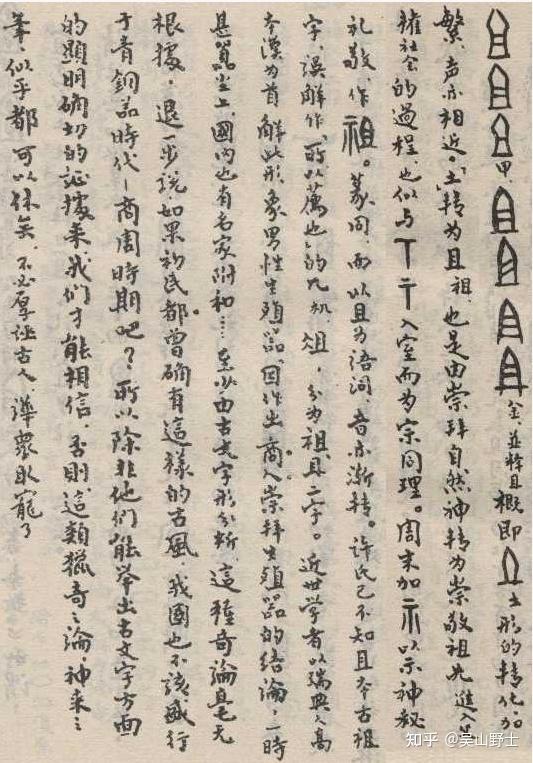 甲、金，並释且概即土形的转化。加
繁，声亦相近。"土"转为且祖，也是由崇拜自然神转为崇敬祖先，進入父
權社会的過程，也似与丅示入室而为宗同理。周末加示以示神秘
礼敬，作祖。篆同，而以且为语词，音亦渐转。许氏已不知且本古祖
字，误解作"所以薦也"的几机、俎，分为祖、且二字。近世学者以瑞典人高
本漢为首解此形象男性生殖器，因作出商人崇拜生殖器的结論，一時
甚嚣尘上，國内也有名家附和……至少由古文字形分析，這種奇論毫无
根據。退一步说，如果初民都曾确有這樣的古風，我國也不該盛行
于青銅器時代—商周時期吧？所以除非他们能举出古文字方面
的顯明确切的证據来，我们才能相信，否則，這類獵奇之論，神来之
筆，似乎都可以休矣，不必厚诬古人，譁眾取寵了
知乎 @吴山野士